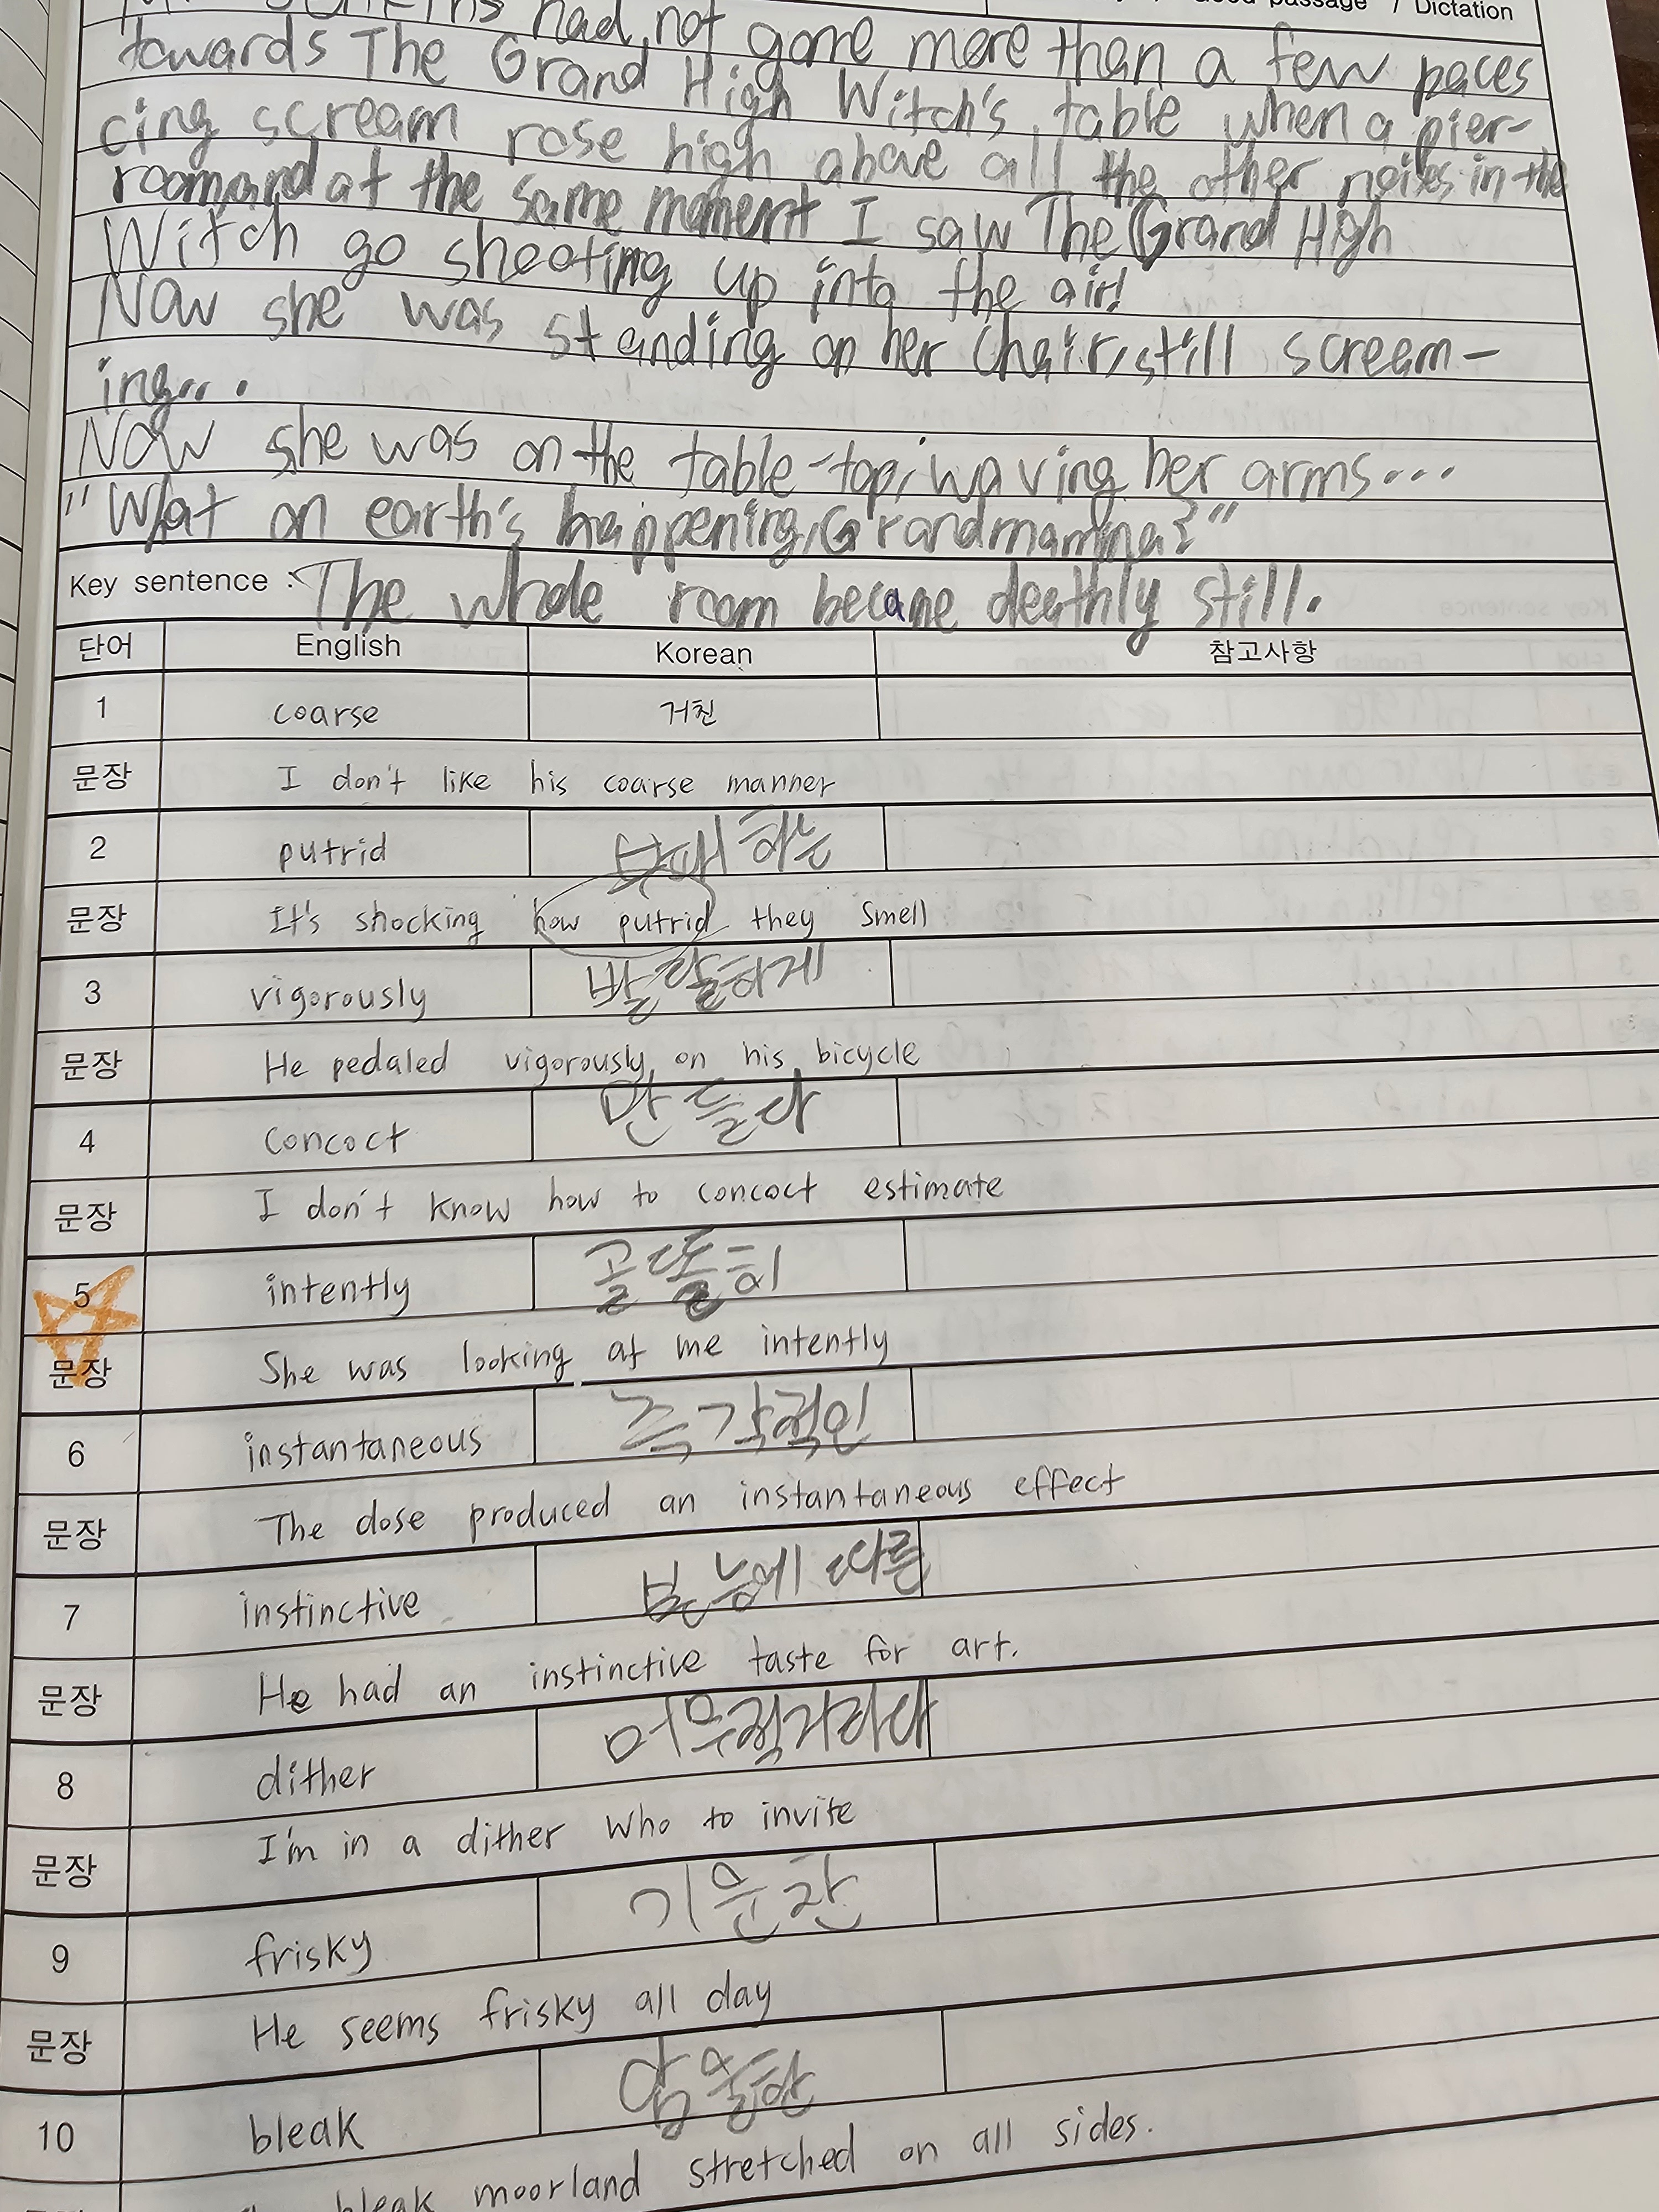 had not gone more than a few paces
towards The Grand High Witch's table when a pier-
cing scream rose high above all the other noises in the
room and at the same moment I saw The Grand High
Witch go shooting up into the air!
Now she was standing on her chair, still scream-
ing...
Now she was on the table-top, waving her arms...
"What on earth's happening, Grandmamma?"
passage / Dictation
Key sentence : The whole room became deathly still.
단어 English Korean 참고사항
1 coarse 거친
문장 I don't like his coarse manner
2 putrid 부패하는
문장 It's shocking how putrid they smell
3 vigorously 발랄하게
문장 He pedaled vigorously on his bicycle
4 concoct 만들다
문장 I don't know how to concoct estimate
5 intently 골똘히
문장 She was looking at me intently
6 instantaneous 즉각적인
문장 The dose produced an instantaneous effect
7 instinctive 본능에 따른
문장 He had an instinctive taste for art.
8 dither 머무적거리다
문장 I'm in a dither who to invite
9 frisky 기운찬
문장 He seems frisky all day
10 bleak 암울한
bleak moorland stretched on all sides.